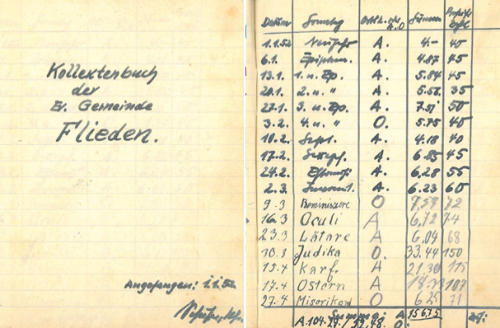 Kollektenbuch
der
Ev. Gemeinde
Flieden.
Angefangen: 1.1.52
Datum Sonntag Summen
1.1.52 Neujahr A. 4.- 40
6.1. Epiphan. A. 4.87 45
13.1. 1. n. Ep. A. 5.84 45
20.1. 2. n. " A. 5.56 35
27.1. 3. n. Ep. A. 7.51 50
3.2. 4. n. " O. 5.75 45
10.2. Sept. A. 4.18 40
17.2. Sexagf. A. 6.85 45
24.2. Estomihi A. 6.28 55
2.3. Invocavit. A. 6.23 60
9.3 Reminiscere O 7.59 72
16.3 Oculi A 6,72 74
23.3 Lätare A 6.04 68
Judika O. 33.44 150
Karf. A 21,30 115
17.4 Ostern A 107
27.4 Miserikord O 6.25 71
Summe: A 156,75
A. 104.